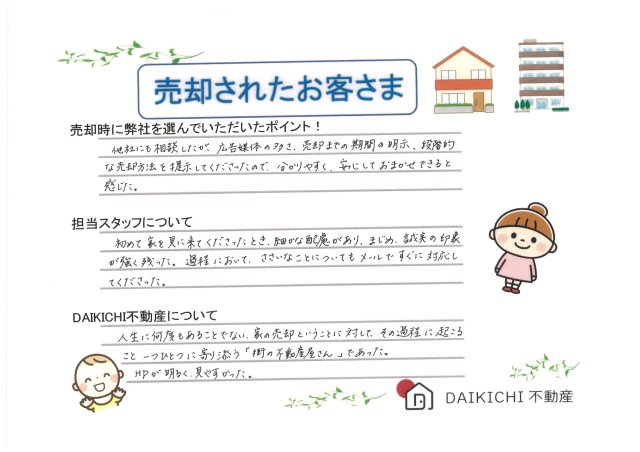 売却されたお客さま
売却時に弊社を選んでいただいたポイント！
他社にも相談したが、広告媒体の多さ、売却までの期間の明示、段階的
な売却方法を提示してくださったので、分かりやすく、安心しておまかせできると
感じた。
担当スタッフについて
初めて家を見に来てくださったとき、細かな配慮があり、まじめ、誠実の印象
が強く残った。過程において、ささいなことについてもメールですぐに対応し
てくださった。
DAIKICHI不動産について
人生に何度もあることでない、家の売却ということに対して、その過程に起こる
こと一つひとつに寄り添う「街の不動産屋さん」であった。
HPが明るく、見やすかった。
DAIKICHI 不動産